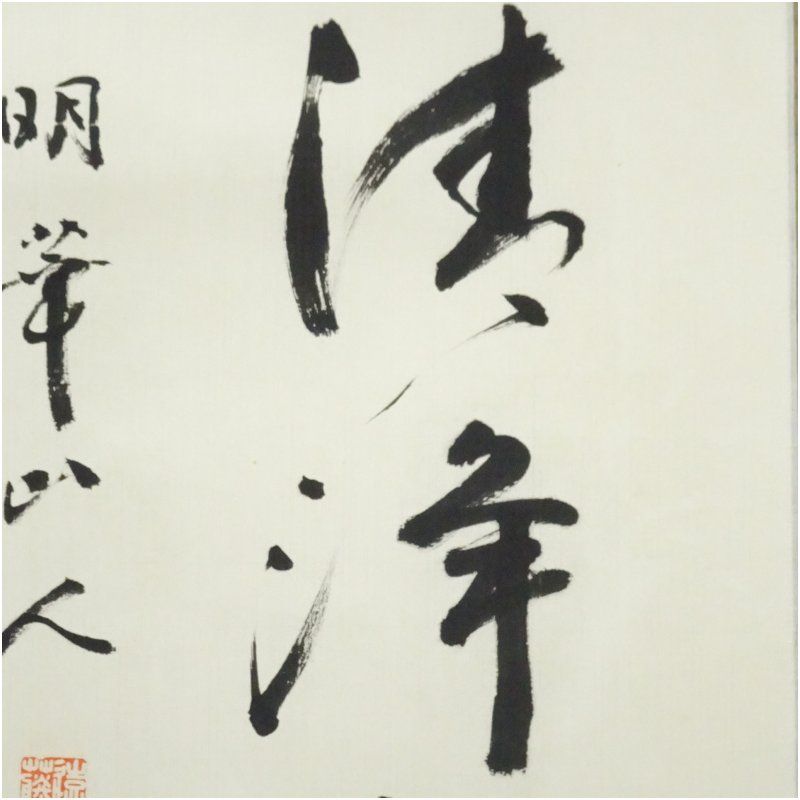 清浄
明華山人